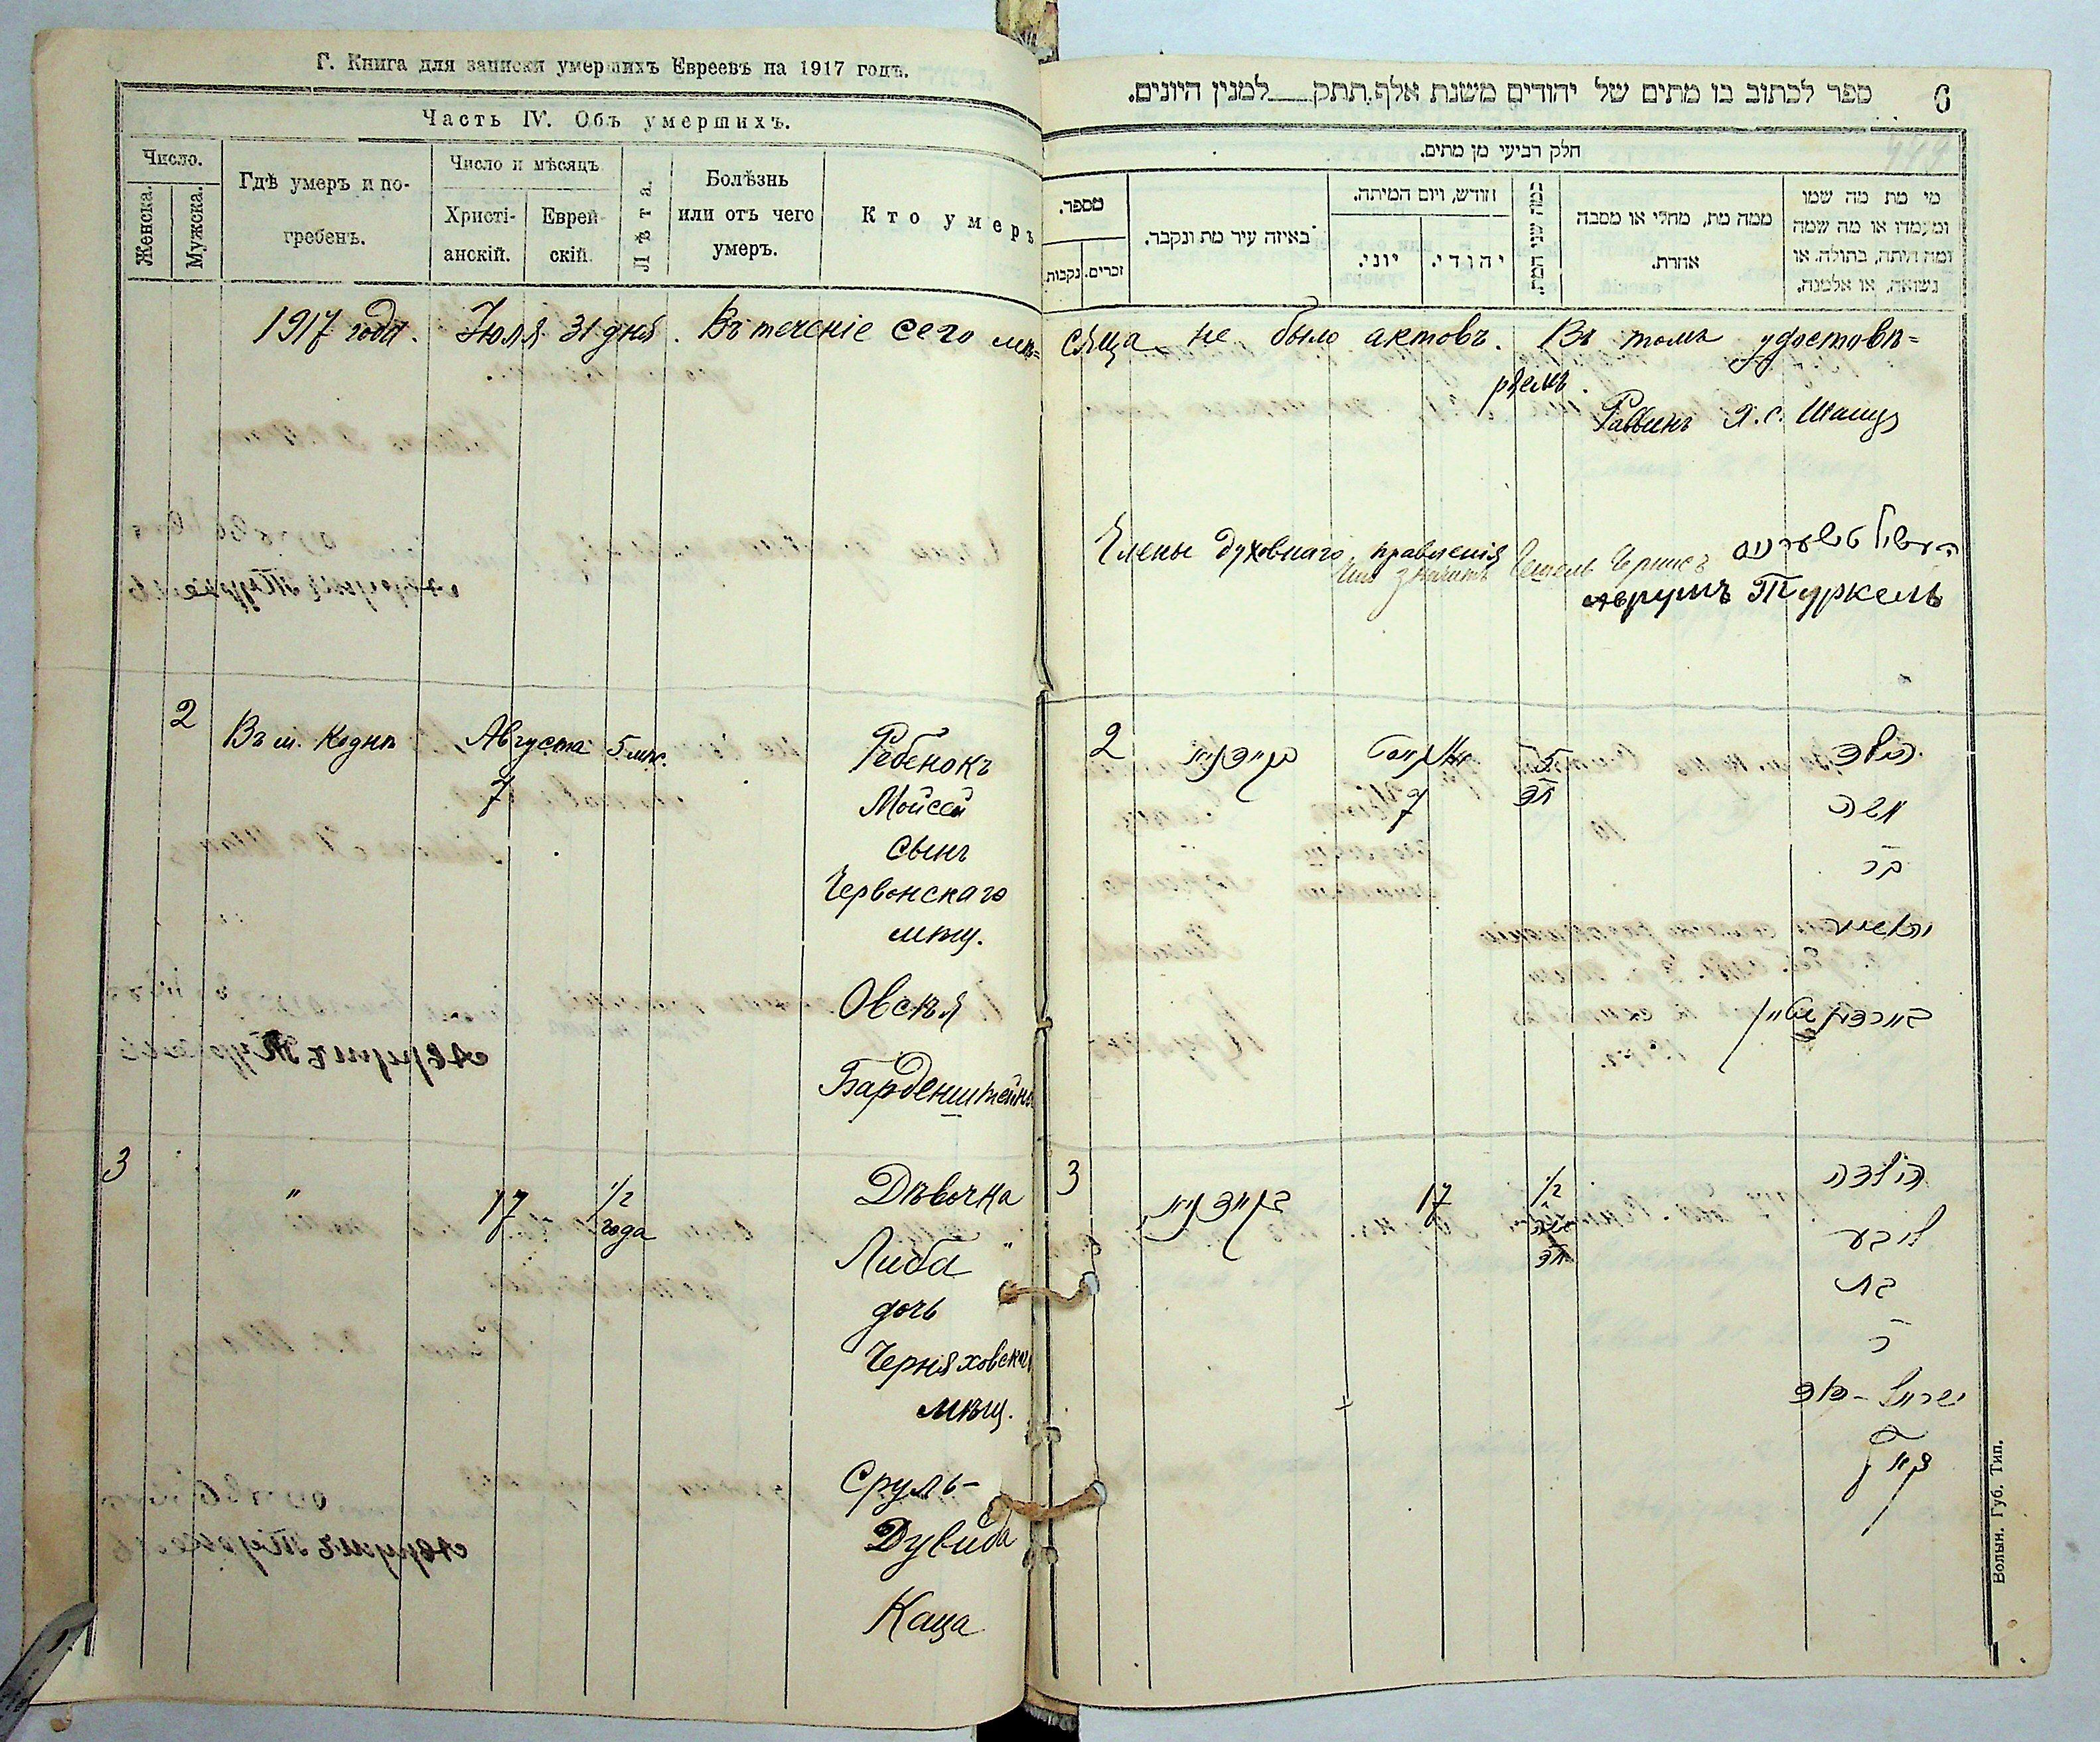 Г. Книга для записки умершихъ Евреевъ на 1917 годъ.
Часть IV. Объ умершихъ.
Число.
Женска.
Мужска.
Гдѣ умеръ и по-
гребенъ.
Число и мѣсяцъ
Христі-
анскій.
Еврей-
скій.
Лѣта.
Болѣзнь
или отъ чего
умеръ.
Кто умеръ
ספר לכתוב בו מתים של יהודים משנת אלף.תתק למנין היונים.
6
חלק רביעי מן מתים.
מספר.
נקבות.
זכרים.
באיזה עיר מת ונקבר.
חודש, ויום המיתה.
יוני.
יהודי.
כמה שני המת
ממה מת, מחלי או מסבה
אחרת.
מי מת מה שמו
ומעמדו או מה שמה
ומה היתה, בתולה, או
נשואה, או אלמנה.
1917 года. Іюля 31 дня. Въ теченіе сего мѣ=сяца не было актовъ. Въ томъ удостовѣ=
ряемъ.
Раввинъ Я. С.
Члены духовнаго правленія
Аврумъ Туркель
2
Въ м. Коднѣ
Августа
7
5 мѣс.
Ребенокъ
Мойсей
сынъ
Червонскаго
мѣщ.
Овсѣя
Барденштейна
2
7
5
הילד
משה
בר
3
"
17
1/2
года
Дѣвочка
Либа
дочь
Черняховскаго
мѣщ.
Сруль-
Дувида
Каца
3
17
1/2
הילדה
ליבע
בת
ר
ישראל - דוד
קאץ
Волын. Губ. Тип.